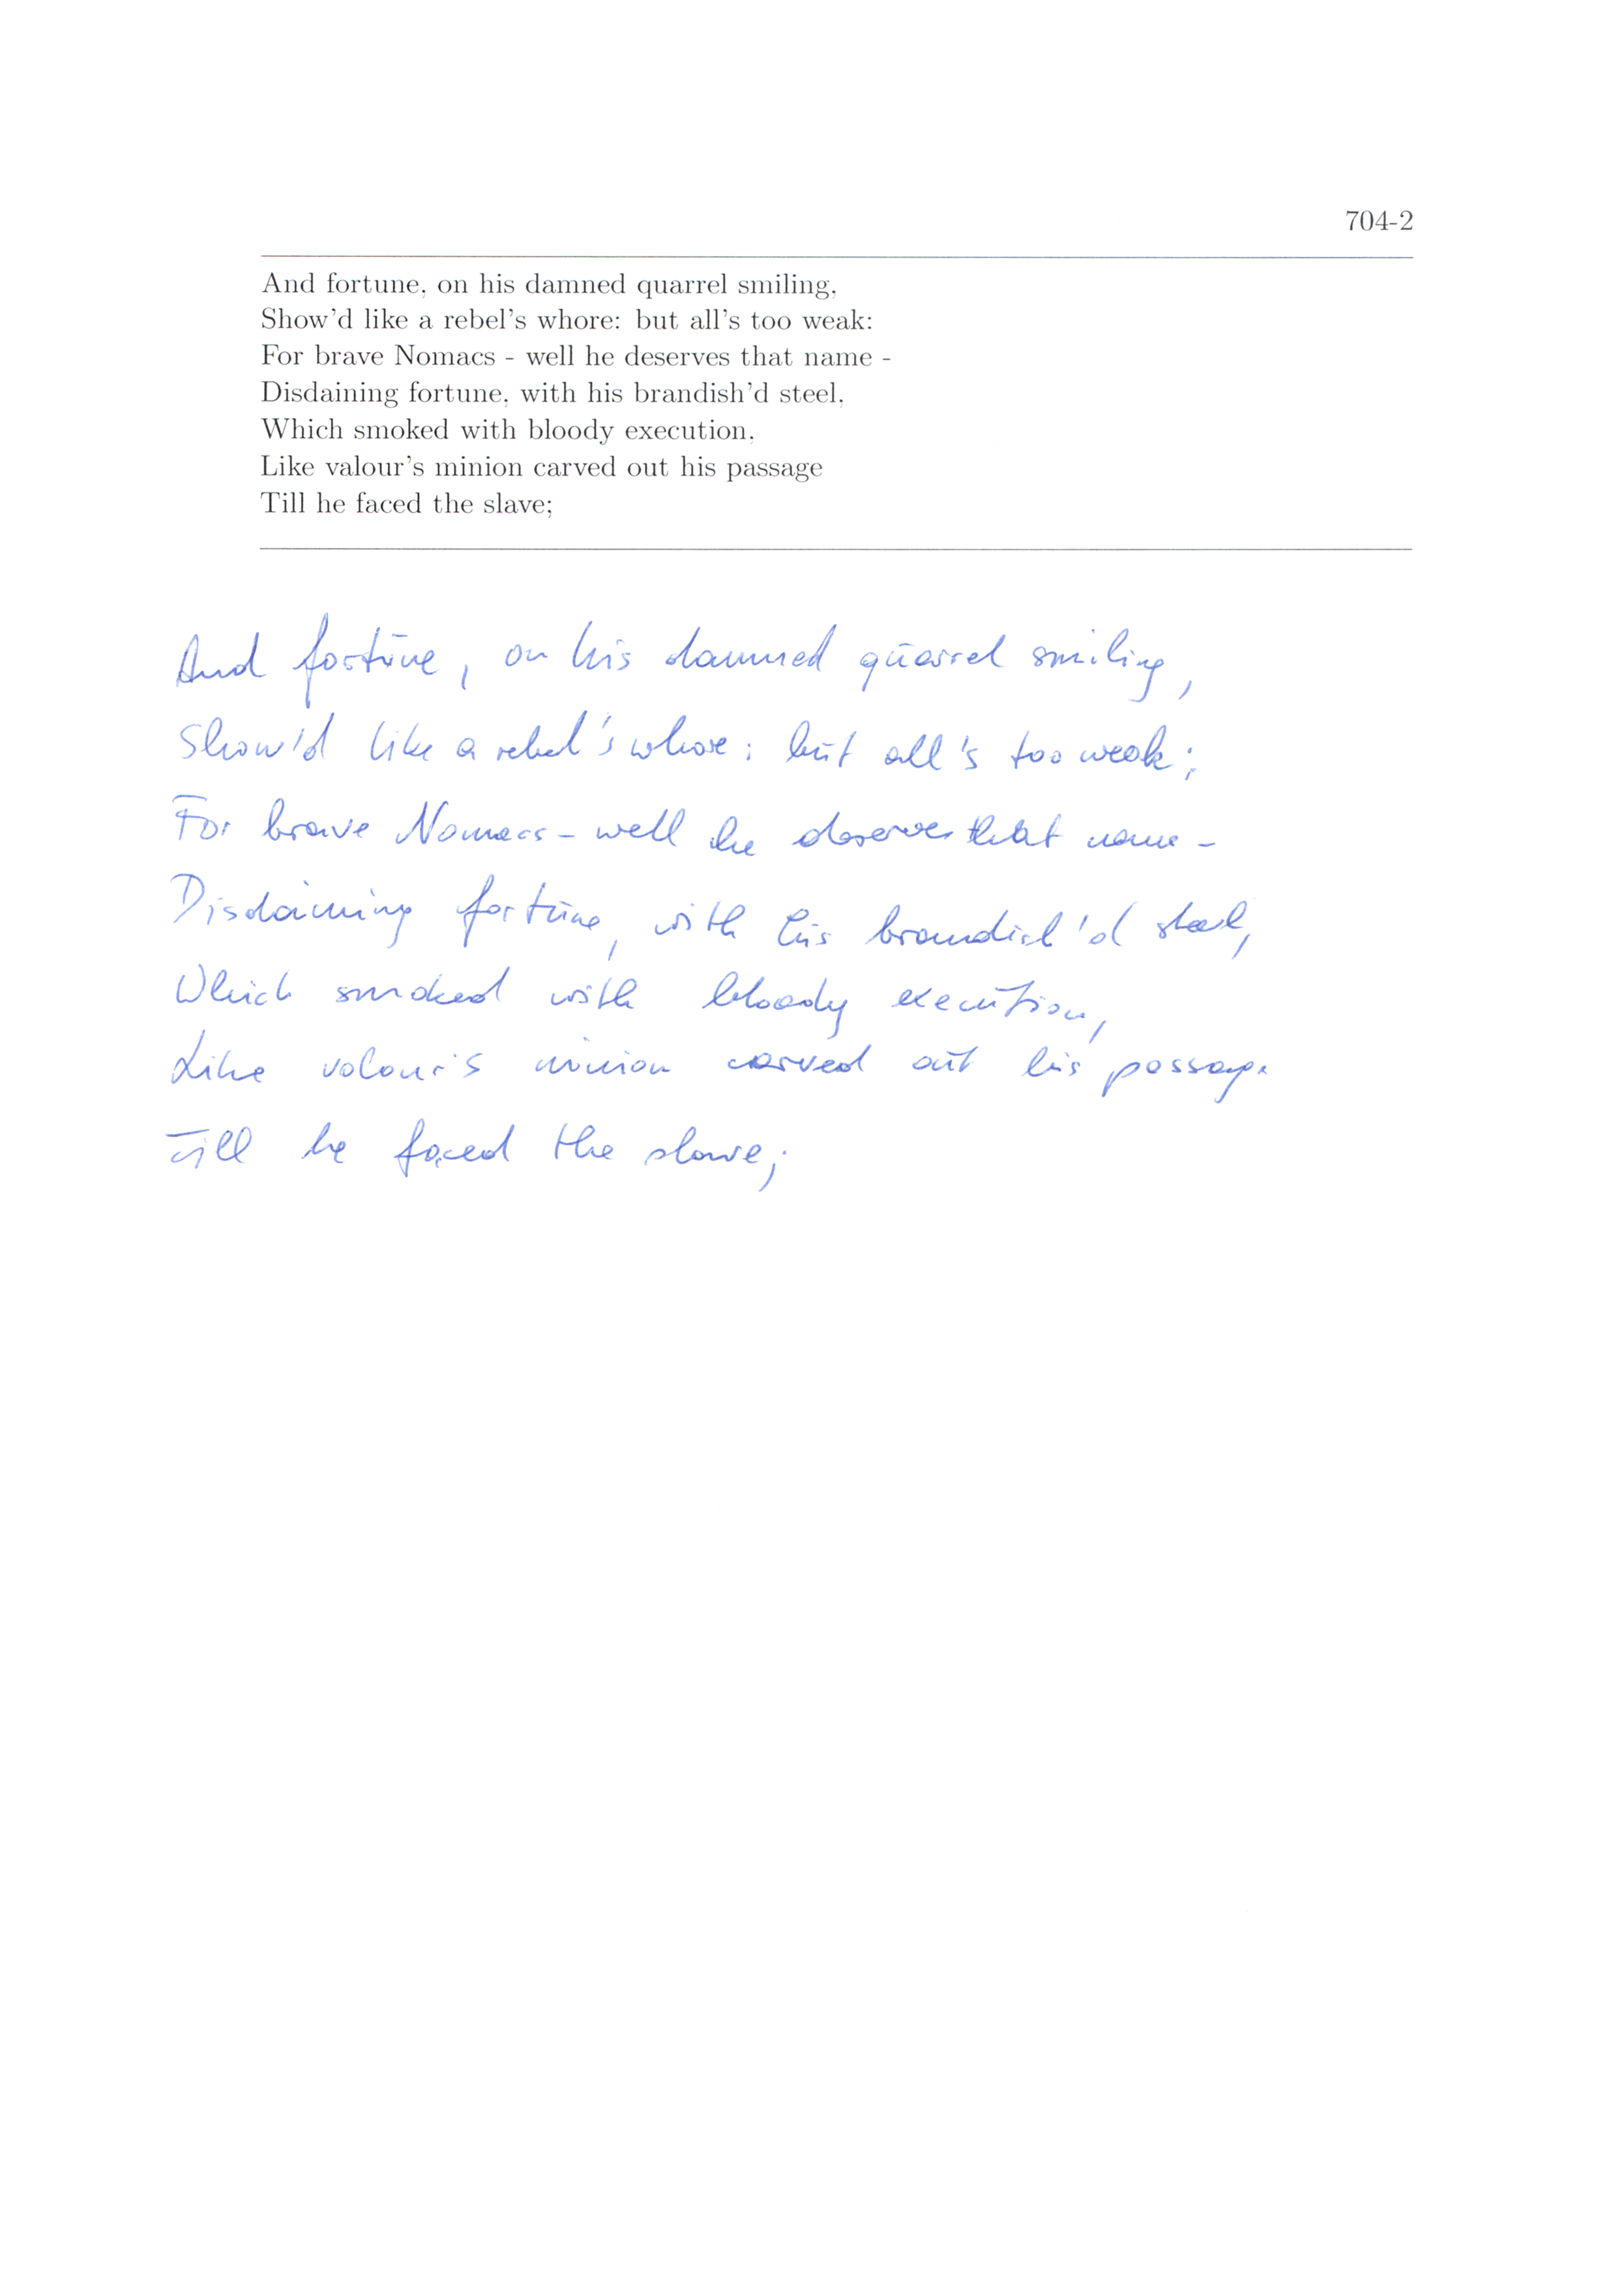 704-2
And fortune, on his damned quarrel smiling,
Show'd like a rebel's whore: but all's too weak:
For brave Nomacs - well he deserves that name -
Disdaining fortune, with his brandish'd steel,
Which smoked with bloody execution,
Like valour's minion carved out his passage
Till he faced the slave;
And fortune, on his damned quarrel smiling,
Show'd like a rebel's whore: but all's too weak:
For brave Nomacs - well he deserves that name -
Disdaining fortune, with his brandish'd steel,
Which smoked with bloody execution,
Like valour's minion carved out his passage
Till he faced the slave;